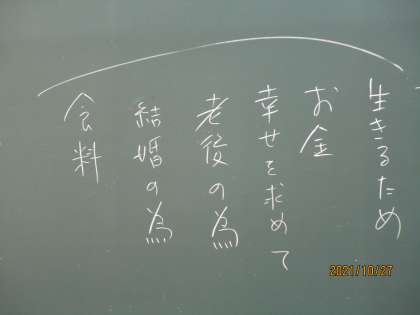 生きるため
お金
幸せを求めて
老後の為
結婚の為
食料
2021/10/27